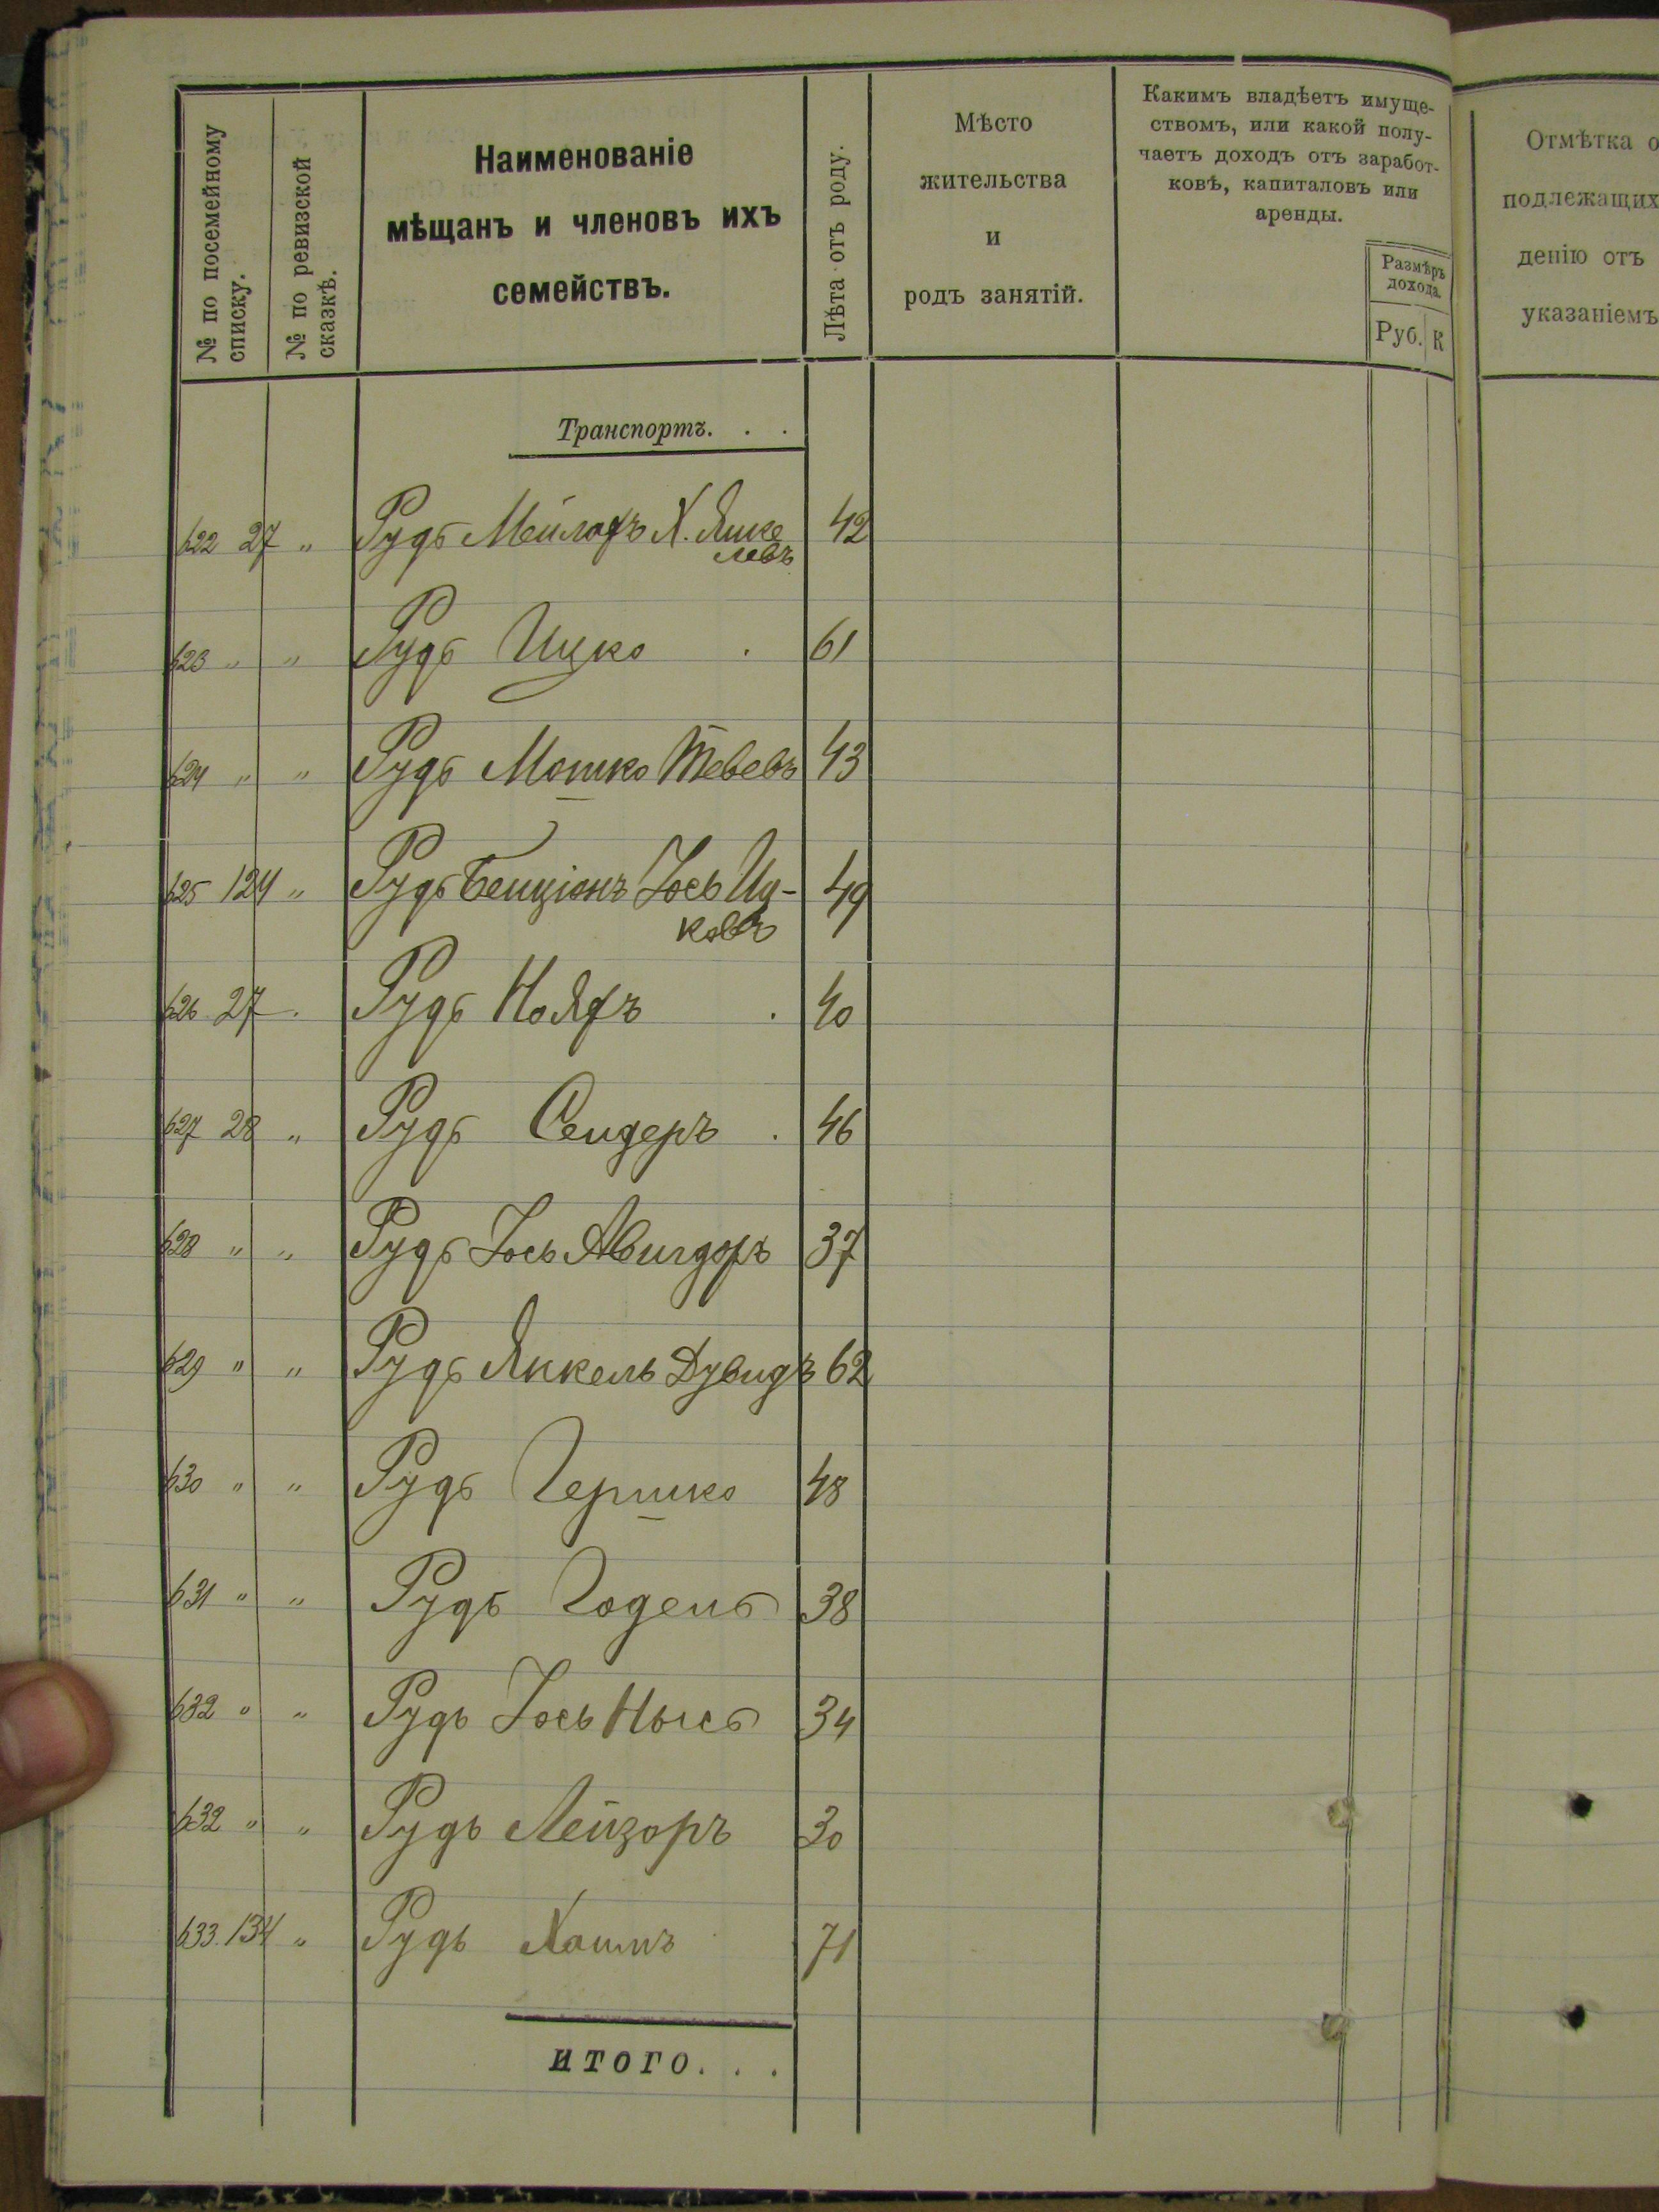 № по посемейному
списку.
№ по ревизской
сказкѣ.
Наименованіе
мѣщанъ и членовъ ихъ
семействъ.
Лѣта отъ роду.
Мѣсто
жительства
и
родъ занятій.
Какимъ владѣетъ имуще-
ствомъ, или какой полу-
чаетъ доходъ отъ заработ-
ковъ, капиталовъ или
аренды.
Размѣръ
дохода
Руб. К
Отмѣтка о
подлежащих
денію отъ
указаніемъ
Транспортъ. . .
622 27 „ Рудь Мейлахъ Х. Янке 42
левъ
623 „ „ Рудь Ицко . 61
624 „ „ Рудь Мошко Тевевъ 43
625 124 „ Рудь Бенціонъ Іось Иц- 49
ковъ
626 27 . Рудь Нояхъ . 40
627 28 „ Рудь Сендеръ . 46
628 „ „ Рудь Іось Авигдоръ 37
629 „ „ Рудь Янкель Дувидъ 62
630 „ „ Рудь Гершко 48
631 „ „ Рудь Годель 38
632 „ „ Рудь Іось Нысь 34
632 „ „ Рудь Лейзоръ 30
633. 134 „ Рудь Хаимъ 71
итого. . .